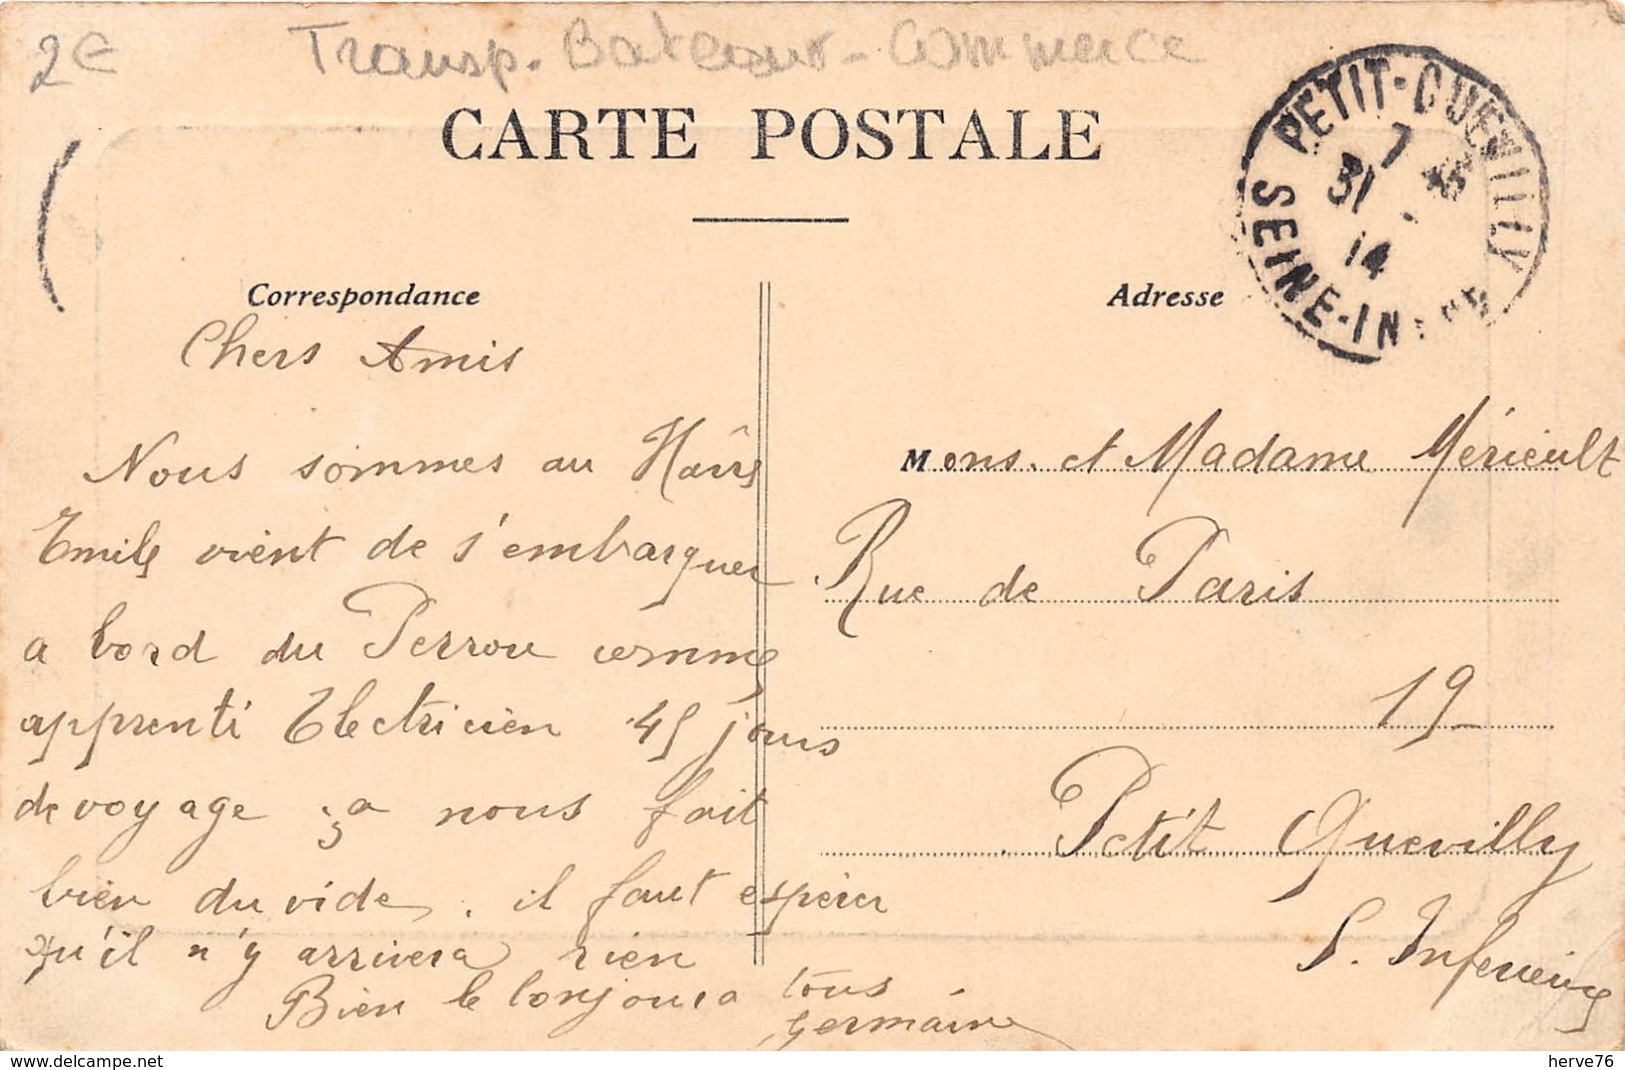 2€
Transp. Bateaux - Commerce
CARTE POSTALE
PETIT-QUEVILLY
7
31
14
SEINE-INFRE
Correspondance
Adresse
Chers Amis
Nous sommes au Hâvre
Emile vient de s'embarquer
a bord du Perrou comme
apprenti Electricien 45 jours
de voyage ça nous fait
bien du vide. il faut espérer
qu'il n'y arrivera rien
Bien le bonjour a tous
Germain
Mons. et Madame Mérieult
Rue de Paris
19
Petit Quevilly
S. Inferieure
delcampe.net
herve76